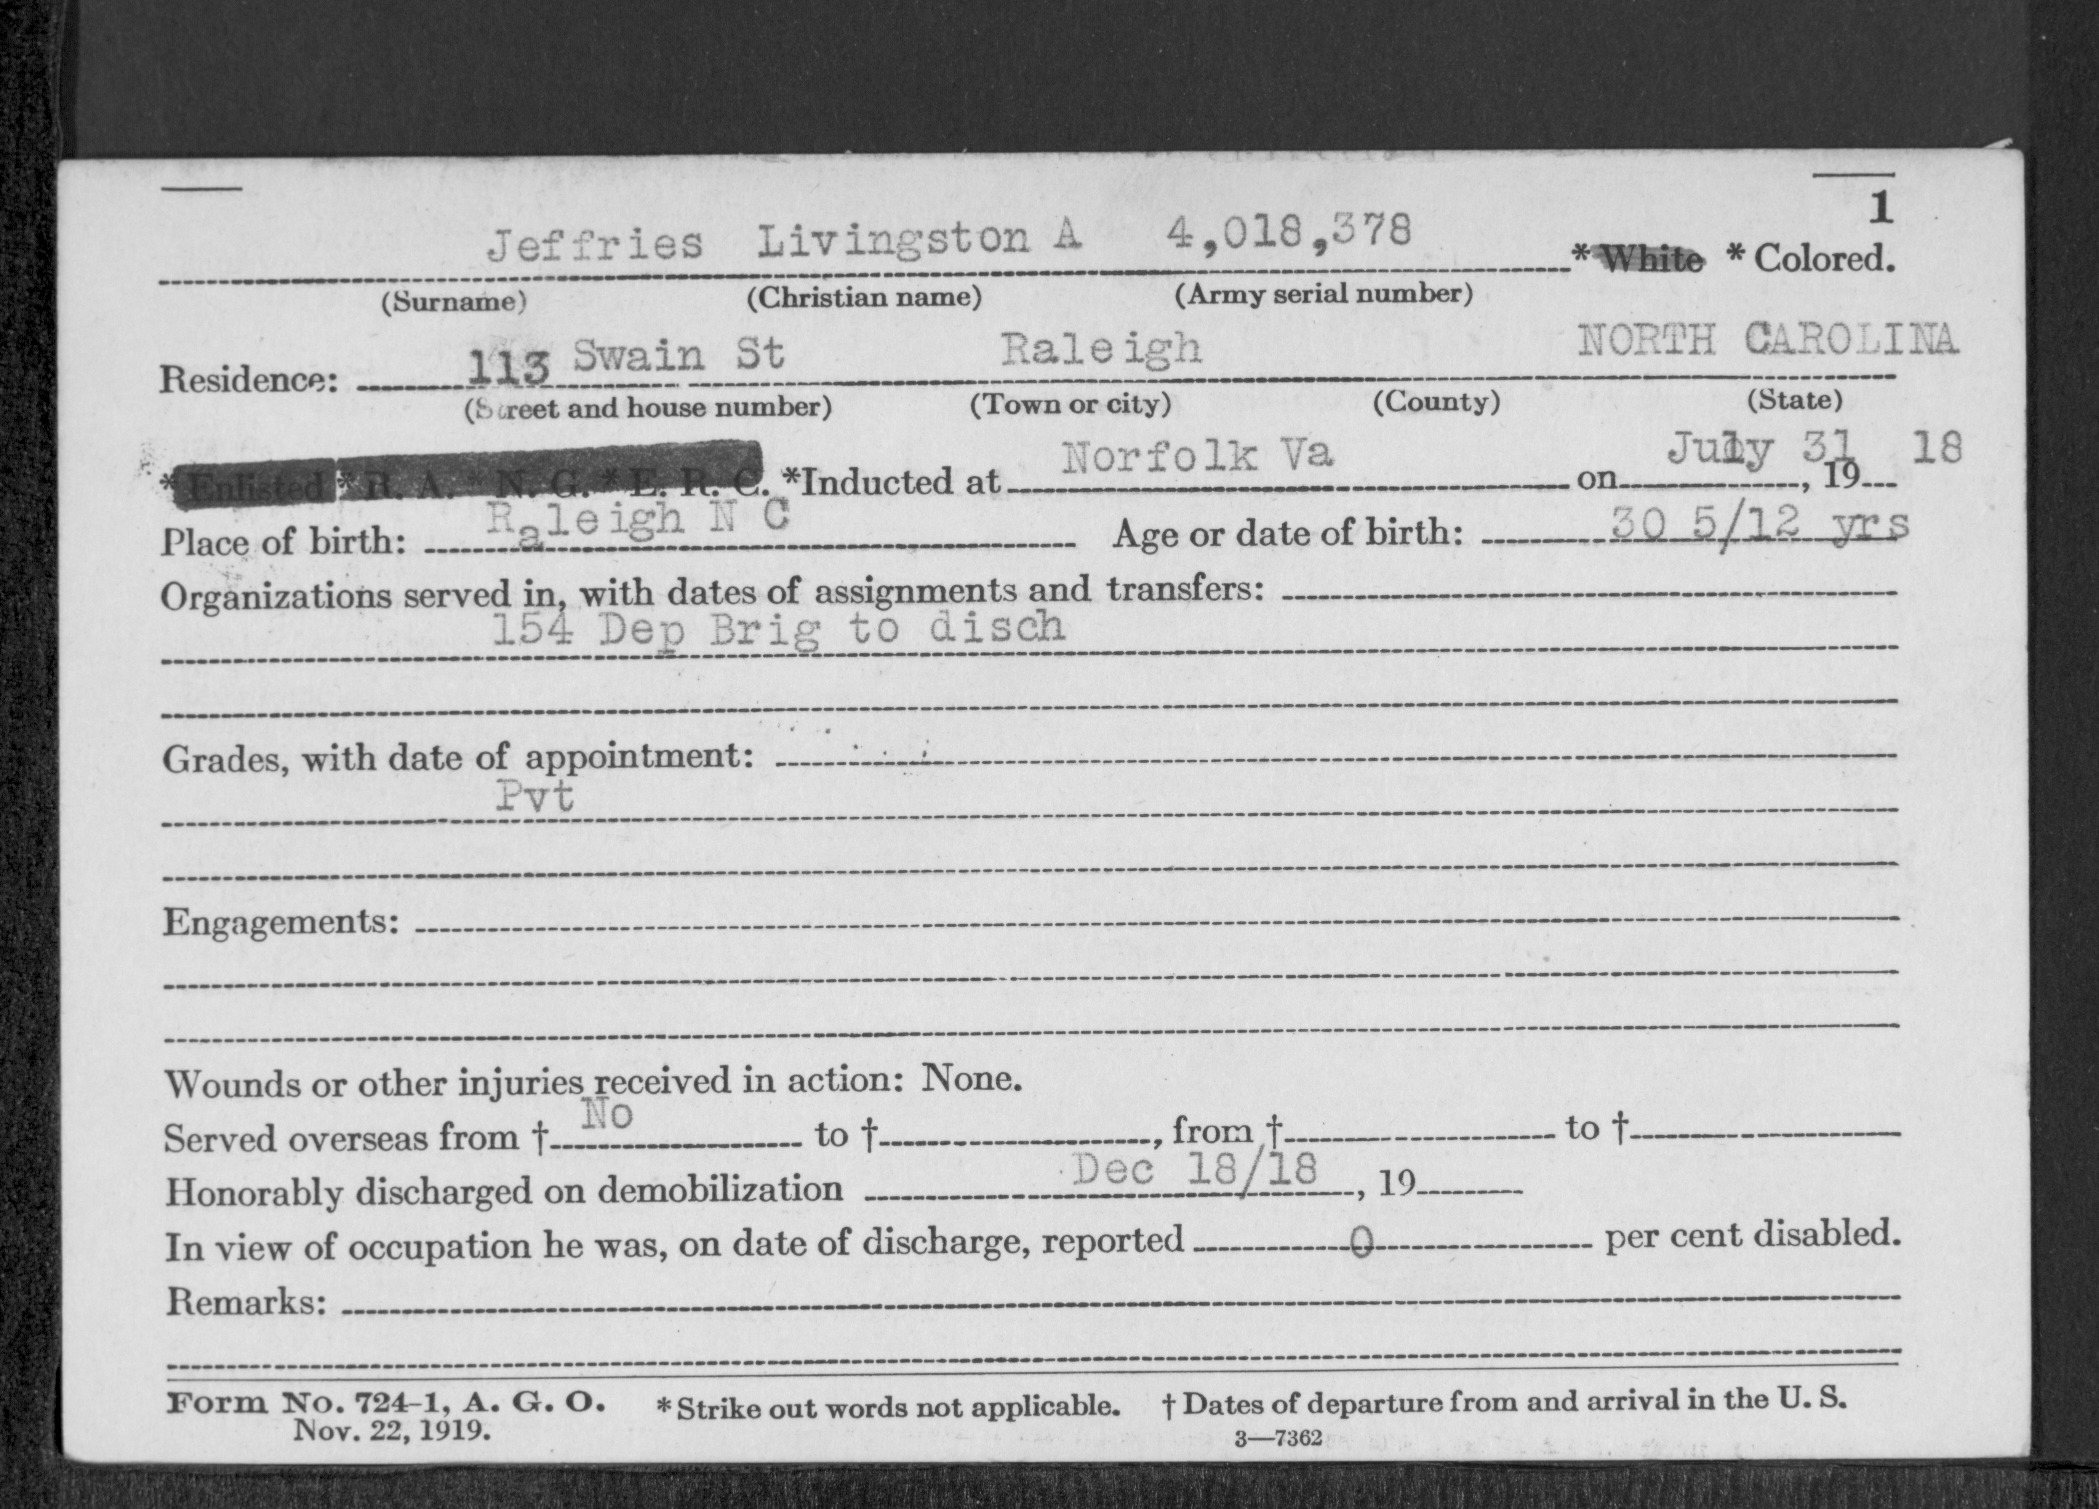 1
Jeffries Livingston A 4,018,378 * White * Colored.
(Surname) (Christian name) (Army serial number)
Residence: 113 Swain St Raleigh NORTH CAROLINA
(Street and house number) (Town or city) (County) (State)
* Enlisted * R. A. * N. G. * E. R. C. *Inducted at Norfolk Va on July 31, 19 18
Place of birth: Raleigh N C Age or date of birth: 30 5/12 yrs
Organizations served in, with dates of assignments and transfers:
154 Dep Brig to disch
Grades, with date of appointment:
Pvt
Engagements:
Wounds or other injuries received in action: None.
Served overseas from † No to †, from † to †
Honorably discharged on demobilization Dec 18/18, 19
In view of occupation he was, on date of discharge, reported 0 per cent disabled.
Remarks:
Form No. 724-1, A. G. O. * Strike out words not applicable. † Dates of departure from and arrival in the U. S.
Nov. 22, 1919. 3—7362